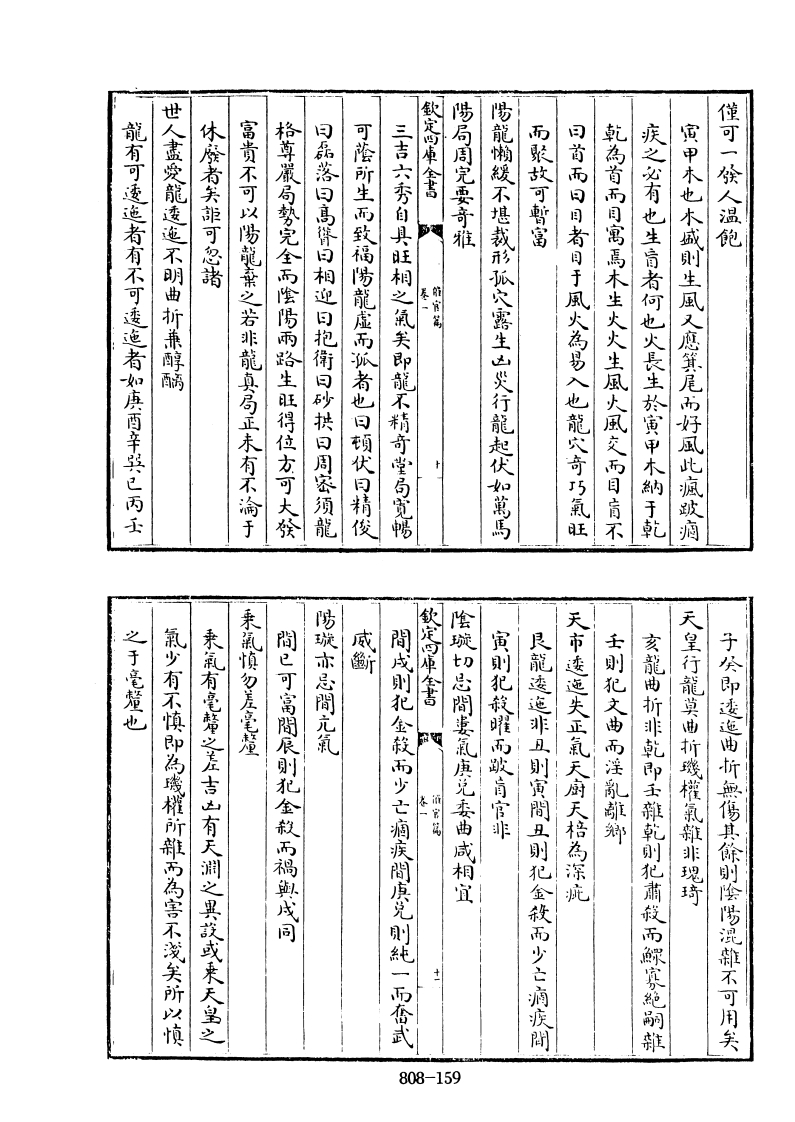 僅可一發人溫飽
寅甲木也木盛則生風又應箕尾而好風此瘋跛痼
疾之必有也生盲者何也火長生於寅甲木納于乾
乾為首而目寓焉木生火火生風火風交而目盲不
曰首而曰目者目于風火為易入也龍穴奇巧氣旺
而聚故可暫富
陽龍懶緩不堪裁形孤穴露生凶災行龍起伏如萬馬
陽局周完要奇雅
欽定四庫全書
卷一
十
三吉六秀自具旺相之氣矣即龍不精奇堂局寬暢
可蔭所生而致福陽龍虛而孤者也曰頓伏曰精俊
曰磊落曰高聳曰相迎曰抱衛曰砂拱曰周密須龍
格尊嚴局勢完全而陰陽兩路生旺得位方可大發
富貴不可以陽龍棄之若非龍真局正未有不淪于
休廢者矣詎可忽諸
世人盡愛龍逶迤不明曲折兼醇醨
龍有可逶迤者有不可逶迤者如庚酉辛巽巳丙壬
子癸即逶迤曲折無傷其餘則陰陽混雜不可用矣
天皇行龍莫曲折璣權氣雜非瑰琦
亥龍曲折非乾即壬雜乾則犯肅殺而鰥寡絕嗣雜
壬則犯文曲而淫亂離鄉
天市逶迤失正氣天廚天棓為深疵
艮龍逶迤非丑則寅間丑則犯金殺而少亡痼疾間
寅則犯殺曜而跛盲官非
陰璇切忌間婁氣庚兌委曲咸相宜
欽定四庫全書
卷一
十一
間戌則犯金殺而少亡痼疾間庚兌則純一而奮武
威斷
陽璇亦忌間亢氣
間巳可富間辰則犯金殺而禍與戌同
乘氣慎勿差毫釐
乘氣有毫釐之差吉凶有天淵之異設或乘天皇之
氣少有不慎即為璣權所雜而為害不淺矣所以慎
之于毫釐也
808-159